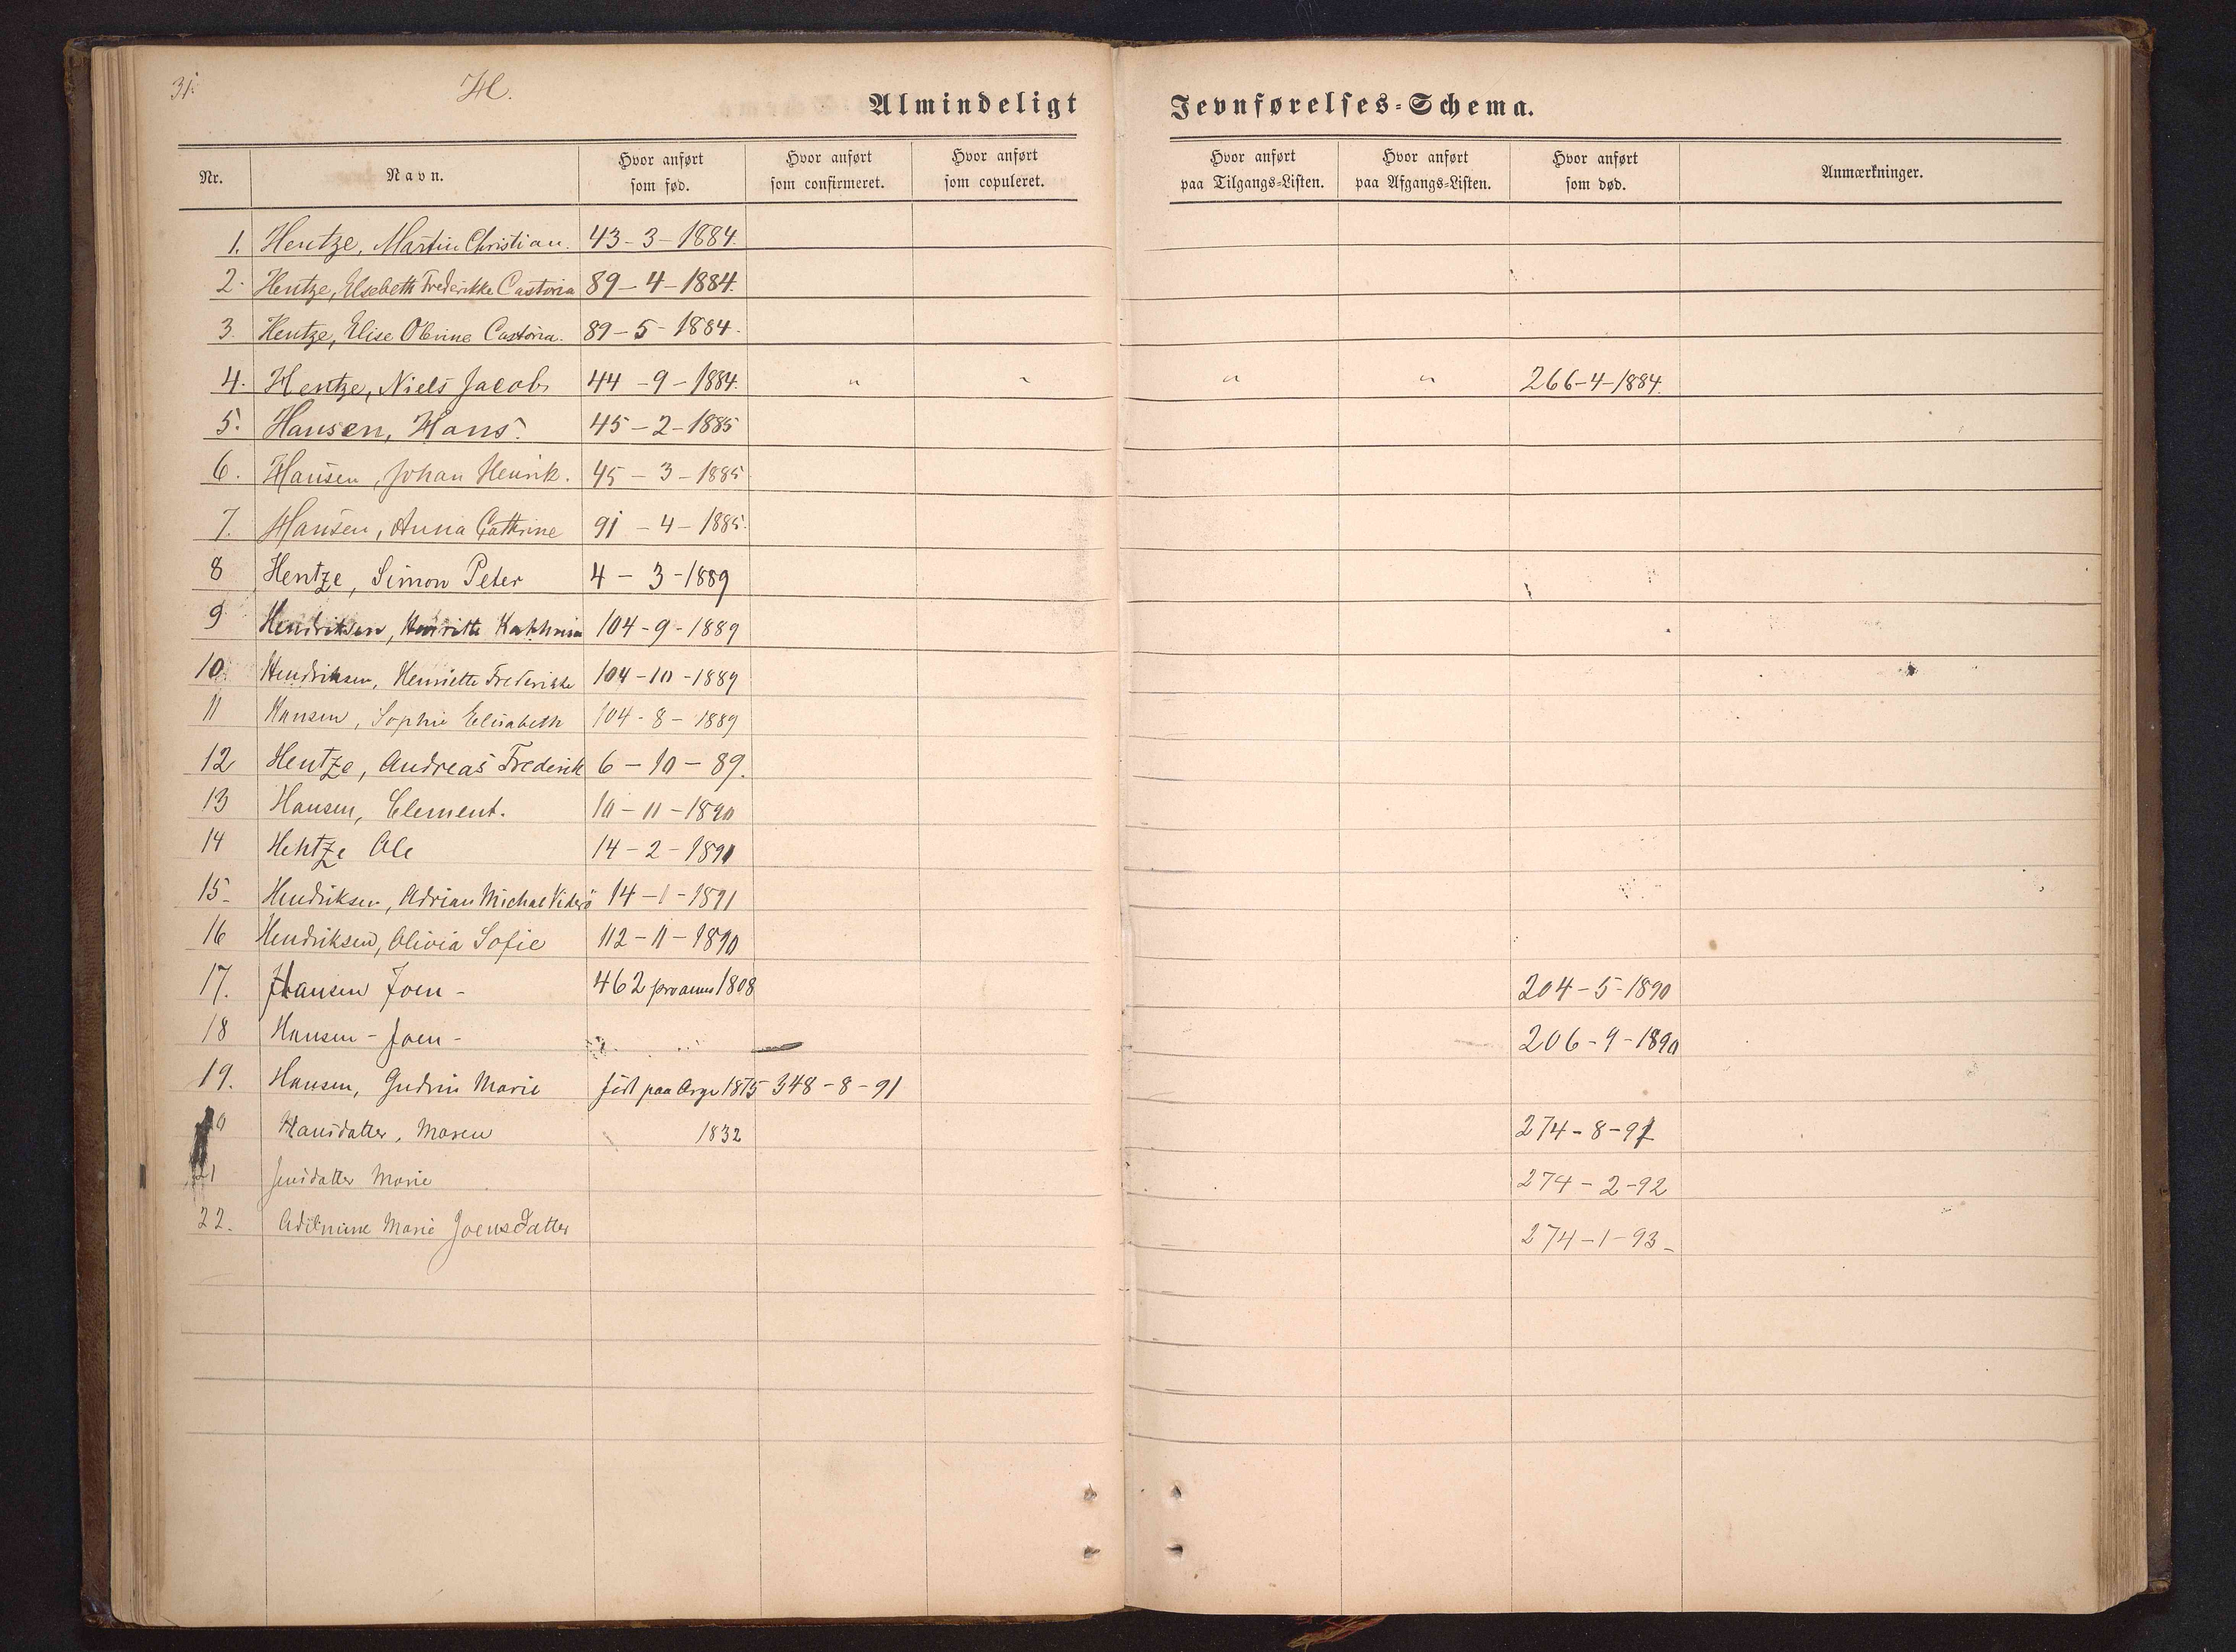 31.
H.
Almindeligt Jevnførelses-Schema.
Nr. Navn. Hvor anført som fød. Hvor anført som confirmeret. Hvor anført som copuleret. Hvor anført paa Tilgangs-Listen. Hvor anført paa Afgangs-Listen. Hvor anført som død. Anmærkninger.
1. Hentze, Martin Christian. 43-3-1884.
2. Hentze, Elsebeth Frederikke Castoria 89-4-1884.
3. Hentze, Elise Olevine Castoria. 89-5-1884.
4. Hentze, Niels Jacob 44-9-1884. " " " " 266-4-1884.
5. Hansen, Hans. 45-2-1885
6. Hansen, Johan Henrik. 45-3-1885
7. Hansen, Anna Cathrine 91-4-1885.
8 Hentze, Simon Peter 4-3-1889
9 Hendriksen, 104-9-1889
10. Hendriksen, Henriette Frederikke 104-10-1889
11 Hansen, Sophie Elisabeth 104-8-1889
12 Hentze, Andreas Frederik 6-10-89.
13 Hansen, Clement. 10-11-1890
14 Hentze Ole 14-2-1891
15- Hendriksen, Adrian Michael Viderö 14-1-1891
16 Hendriksen, Olivia Sofie 112-11-1890
17. Hansen Joen- 462 pro anno 1808 204-5-1890
18 Hansen-Joen- 206-9-1890
19. Hansen, Gudrun Marie født paa 1875 348-8-91
Hansdatter, Maren 1832 274-8-91
21 Marie 274-2-92
22. Marie Joensdatter 274-1-93-